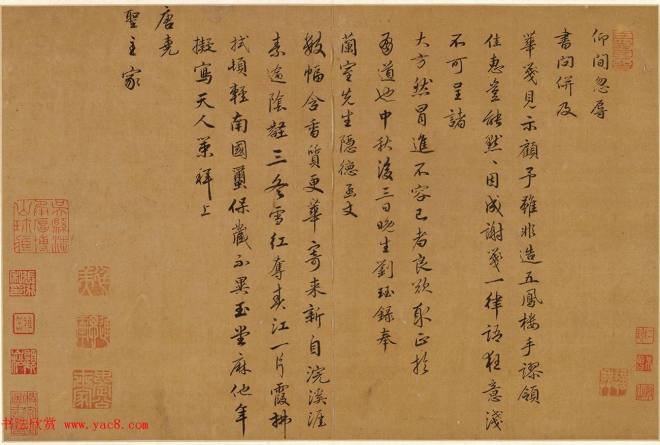 仰间忽辱
書问併及
華箋見示顧予雖非造五鳳樓手謬領
佳惠豈能默〻因成謝箋一律語狂意淺
不可呈諸
大方然冒進不容已者良欲取正於
有道也中秋後三日晚生劉珏錄奉
蘭室先生隱德画丈
數幅含香質更華寄来新自浣溪涯
素逾陰壑三冬雪紅奪春江一片霞拂
拭頓輕南國蠒保藏不異玉堂麻他年
擬寫天人策祥上
唐堯
聖主家
书法欣赏 www.yac8.com